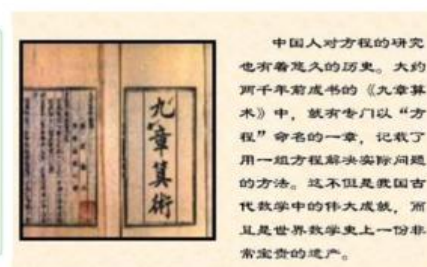 九章算術
中国人对方程的研究
也有着悠久的历史。大约
两千年前成书的《九章算
术》中，就有专门以“方
程”命名的一章，记载了
用一组方程解决实际问题
的方法。这不但是我国古
代数学中的伟大成就，而
且是世界数学史上一份非
常宝贵的遗产。